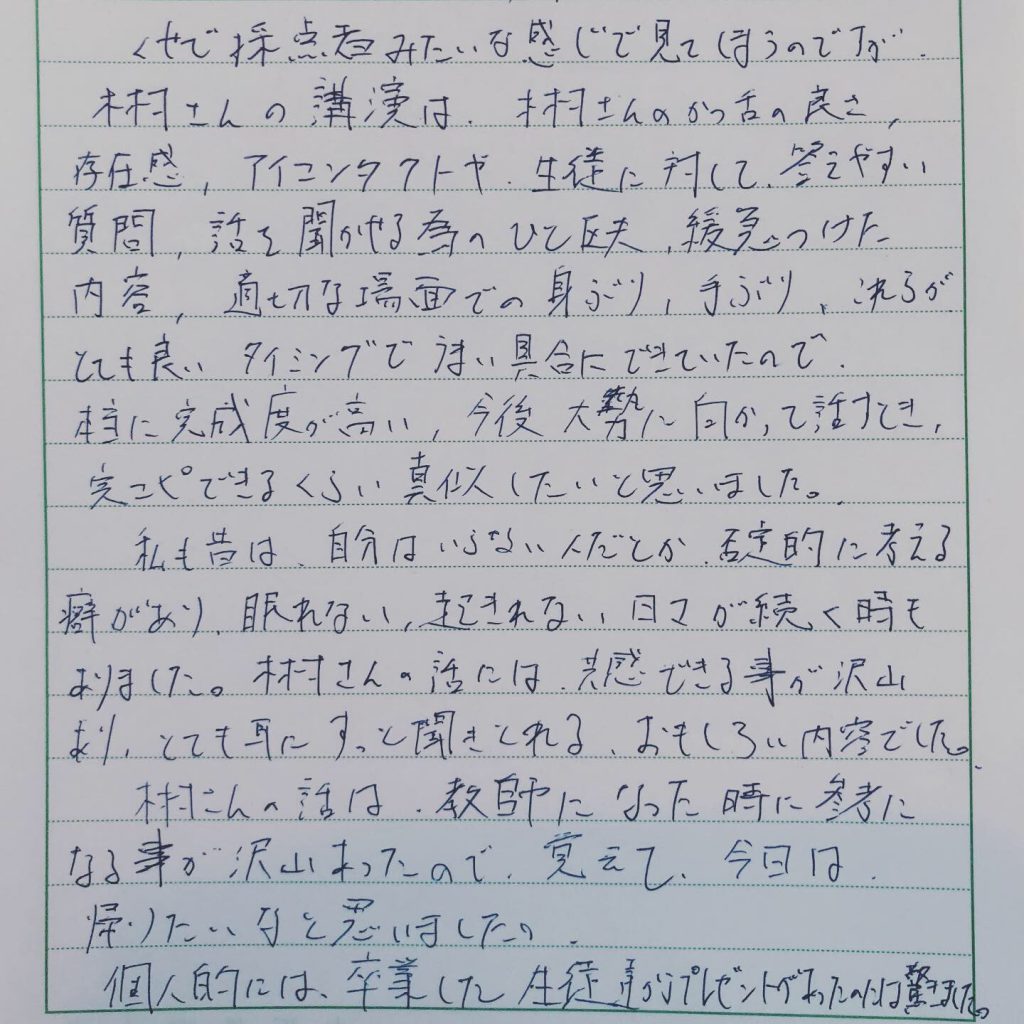 くせで採点者みたいな感じで見てしまうのですが、
木村さんの講演は、木村さんのかつ舌の良さ、
存在感、アイコンタクトや、生徒に対して、答えやすい
質問、話を聞かせる為のひと工夫、緩急つけた
内容、適切な場面での身ぶり、手ぶり、これらが
とても良いタイミングでうまい具合にできていたので、
本当に完成度が高い、今後大勢に向かって話すとき、
完コピできるくらい真似したいと思いました。
私も昔は、自分はいらない人だとか、否定的に考える
癖があり、眠れない、起きれない日々が続く時も
ありました。木村さんの話には、共感できる事が沢山
あり、とても耳にすっと聞きとれる、おもしろい内容でした。
木村さんの話は、教師になった時に参考に
なる事が沢山あったので、覚えて、今日は、
帰りたいなと思いましたの、
個人的には、卒業した生徒達からプレゼントがあったのには驚きました。